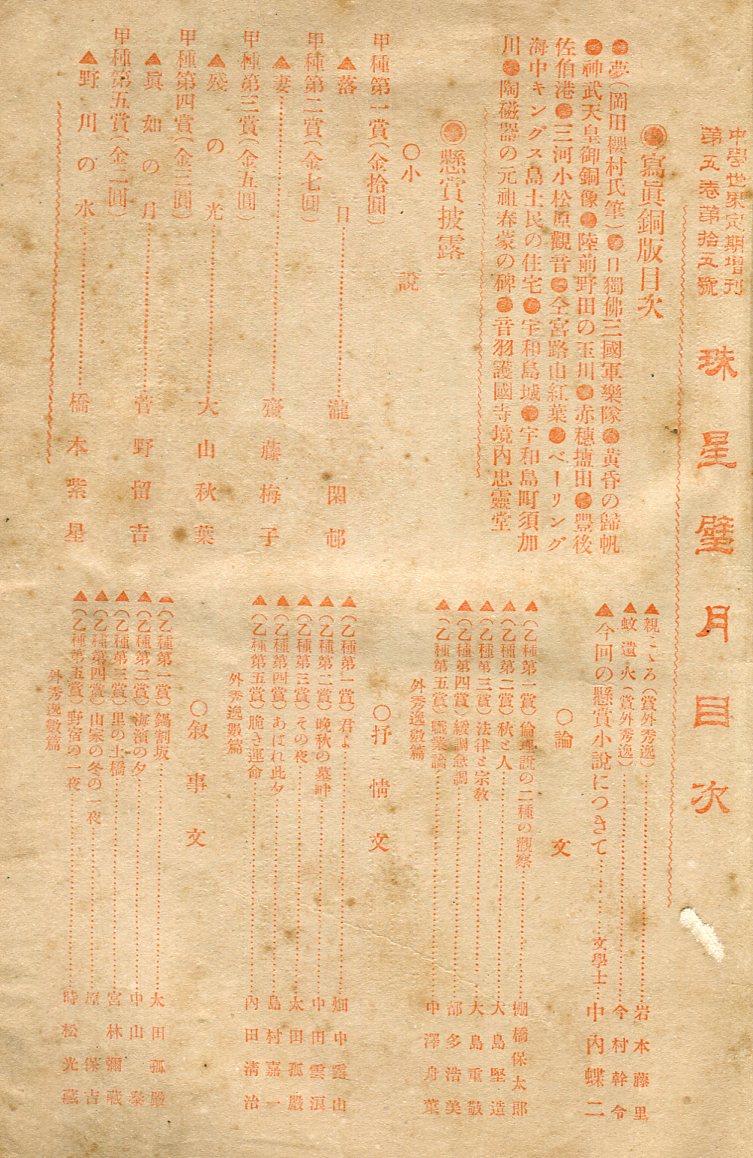 中學世界定期增刊
第五卷第拾五號
珠星璧月目次
◉寫眞銅版目次
●夢(岡田櫻村氏筆)●日獨佛三國軍樂隊●黃昏の歸帆
●神武天皇御銅像●陸前野田の玉川●赤穗塩田●豐後
佐伯港●三河小松原觀音●全宮路山紅葉●ベーリング
海中キングス島土民の住宅●宇和島城●宇和島町須加
川●陶磁器の元祖春蒙の碑●音羽護國寺境内忠靈堂
◉懸賞披露
○小說
甲種第一賞(金拾圓)
▲落日……瀧閑邨
甲種第二賞(金七圓)
▲妻……齋藤梅子
甲種第三賞(金五圓)
▲殘の光……大山秋葉
甲種第四賞(金三圓)
▲眞如の月……菅野留吉
甲種第五賞(金二圓)
▲野川の水……橋本紫星
▲親こゝろ(賞外秀逸)……岩本藤里
▲蚊遣火(賞外秀逸)……今村幹令
▲今回の懸賞小說につきて……文學士…中內蝶二
○論文
▲(乙種第一賞)倫理說の二種の觀察……棚橋保太郎
▲(乙種第二賞)秋と人……大島堅造
▲(乙種第三賞)法律と宗敎……大島重敬
▲(乙種第四賞)緩調急調……部多浩美
▲(乙種第五賞)職業論……中澤舟葉
外秀逸數篇
○抒情文
▲(乙種第一賞)君よ……畑中霞山
▲(乙種第二賞)晚秋の墓畔……中田雲浪
▲(乙種第三賞)その夜……太田孤嚴
▲(乙種第四賞)あはれ此夕……島村嘉一
▲(乙種第五賞)脆き運命……內田淸治
外秀逸數篇
○叙事文
▲(乙種第一賞)鍋割坂……太田孤嚴
▲(乙種第二賞)海濱の夕……中山泰
▲(乙種第三賞)里の土橋……宮林彌藏
▲(乙種第四賞)山家の冬の一夜……原保吉
▲(乙種第五賞)野宿の一夜……時松光藏
外秀逸數篇